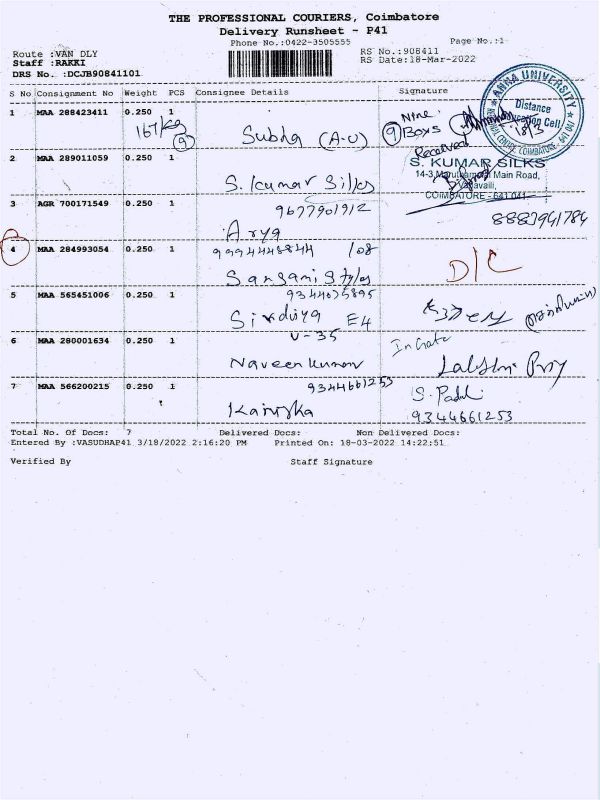 THE PROFESSIONAL COURIERS, Coimbatore
Delivery Runsheet - P41
Phone No.:0422-3505555
Page No.:1
Route :VAN DLY
RS No.:908411
Staff :RAKKI
RS Date:18-Mar-2022
DRS No. :DCJB90841101
S No Consignment No Weight PCS Consignee Details Signature
1 MAA 288423411 0.250 1
167/kg
9
Subha (A-U)
Nine
9 Boxs
Received
ANNA UNIVERSITY
Distance
Education Cell
18/3
2 MAA 289011059 0.250 1
S. Kumar Silks
S. KUMAR SILKS
14-3, Maruthamalai Main Road,
Vadavalli,
COIMBATORE - 641 041
3 AGR 700171549 0.250 1
9677901912
Arya
8883941784
4 MAA 284993054 0.250 1
9994448844 108
Sangani Styles
D/C
5 MAA 565451006 0.250 1
9344075895
E4
6 MAA 280001634 0.250 1
U-35
Naveen kumar
7 MAA 566200215 0.250 1
9344661253
Kanishka
S. Padul
9344661253
Total No. Of Docs: 7 Delivered Docs: Non Delivered Docs:
Entered By :VASUDHAP41 3/18/2022 2:16:20 PM Printed On: 18-03-2022 14:22:51
Verified By Staff Signature